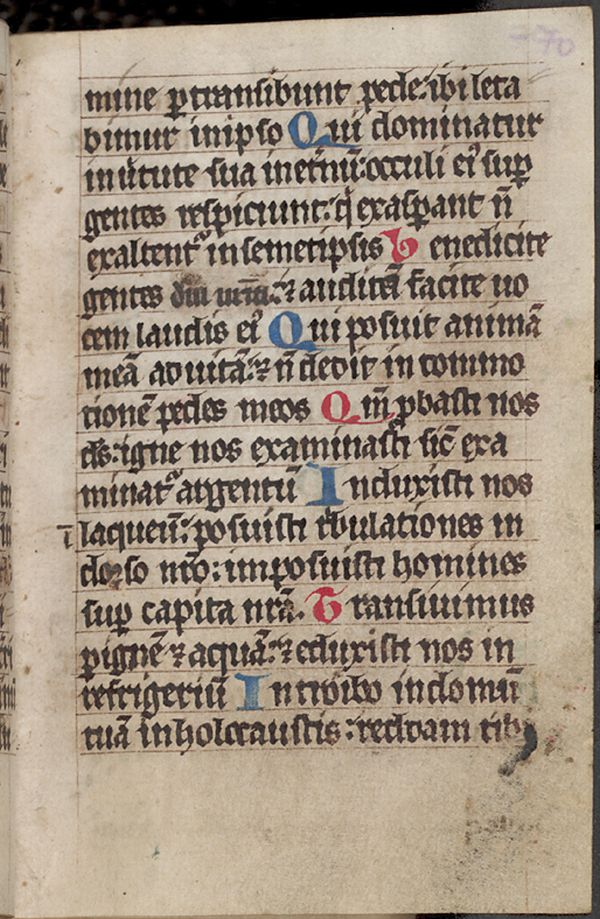 -70
mine ꝑtransibunt pede: ibi leta
bimur in ipso Qui dominatur
in ũtute sua in et̃nũ: occuli ei᷒ suꝑ
gentes respiciunt: q̇ exasꝑant ñ
exaltent᷑ in semetipsis Benedicite
gentes dm̃ nr̃m: ⁊ auditã facite uo
cem laudis ei᷒ Qui posuit animã
meã ad uitã: ⁊ ñ dedit in commo
tionẽ pedes meos Qm̃ ꝓbasti nos
ds̃: igne nos examinasti sic̃ exa
minat᷑ argentũ Induxisti nos
ĩ laqueũ: posuisti t̃bulationes in
dorso nr̃o: imposuisti homines
suꝑ capita nr̃a. Transiuimus
ꝑ ignẽ ⁊ aquã: ⁊ eduxisti nos in
refrigeriũ Introibo in domũ
tuã in holocaustis: reddam tibi